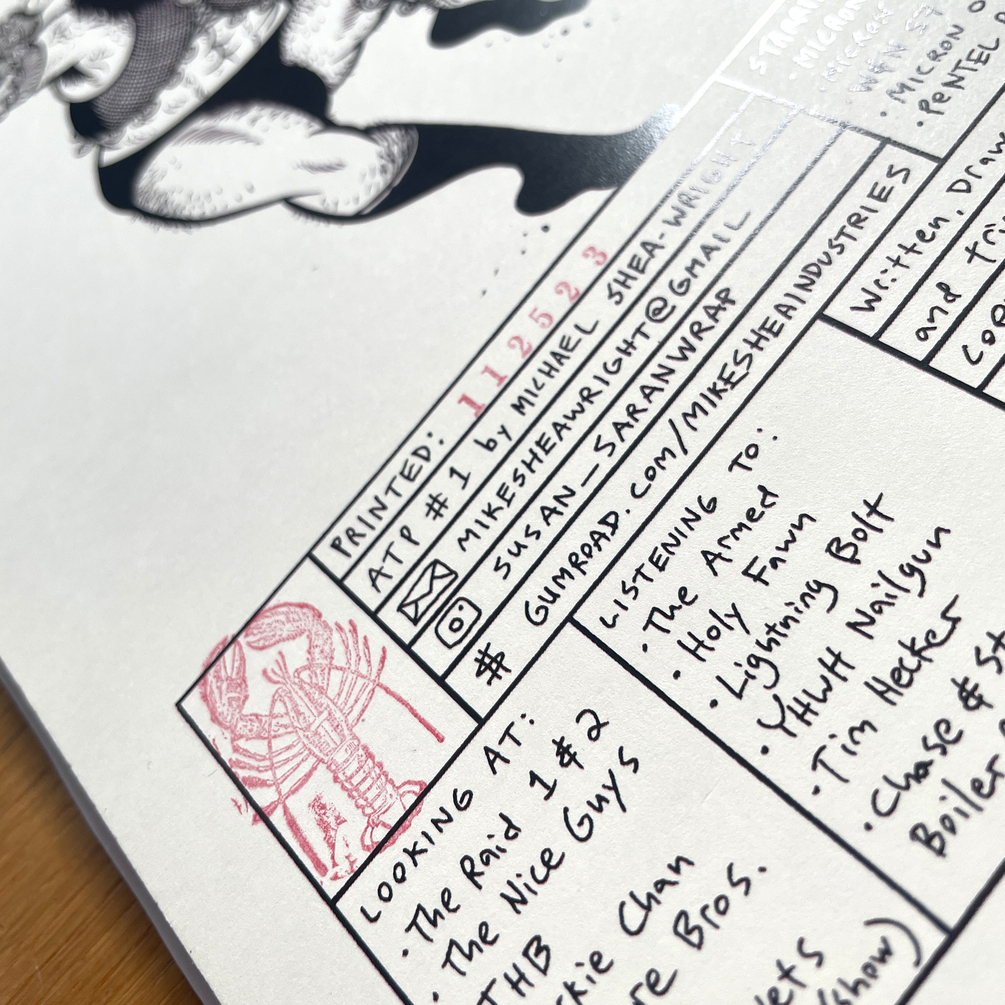 MICRON
W&N
• MICRON
• PENTEL
PRINTED: 112523
ATP # 1 by MICHAEL SHEA-WRIGHT
MIKESHEAWRIGHT@GMAIL
SUSAN_SARANWRAP
$ GUMROAD.COM/MIKESHEAINDUSTRIES
Written, Draw
and tri
LISTENING TO:
• The Armed
• Holy Fawn
• Lightning Bolt
• YHWH Nailgun
• Tim Hecker
• Chase & St
Boiler
LOOKING AT:
• The Raid 1 & 2
The Nice Guys
• THB
kie Chan
re Bros.
ets
show)